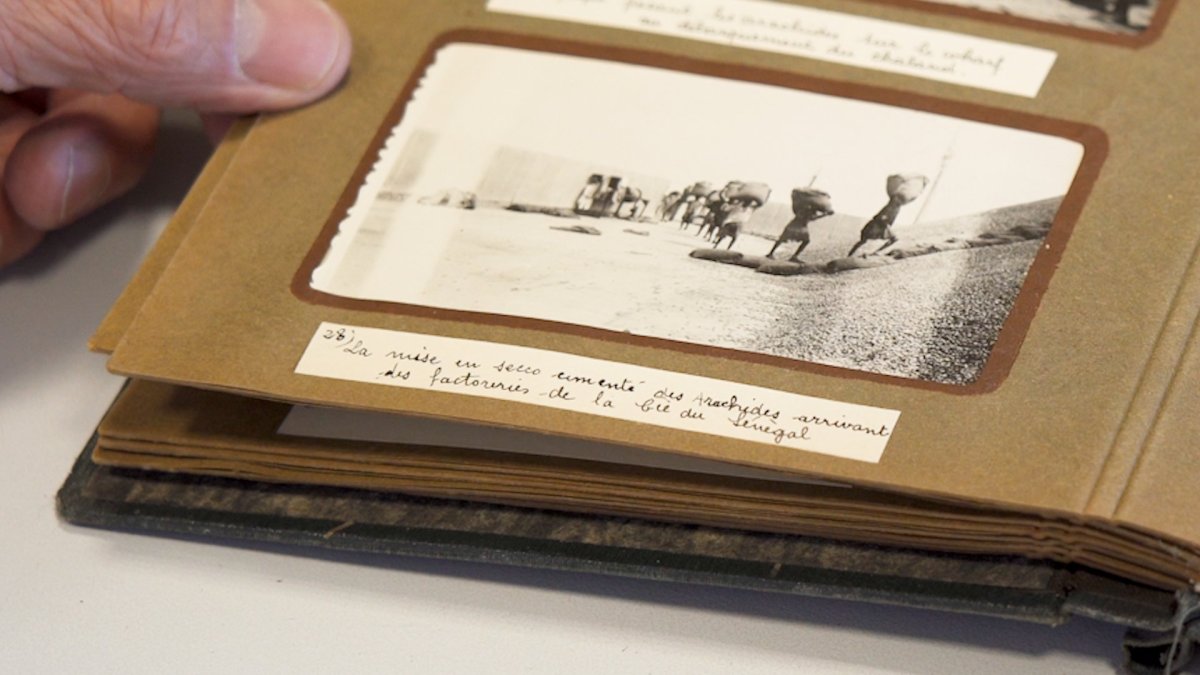 pesant les arachides sur le wharf
au débarquement du chaland.
28) La mise en secco cimenté des Arachides arrivant
des factoreries de la Cie du Sénégal